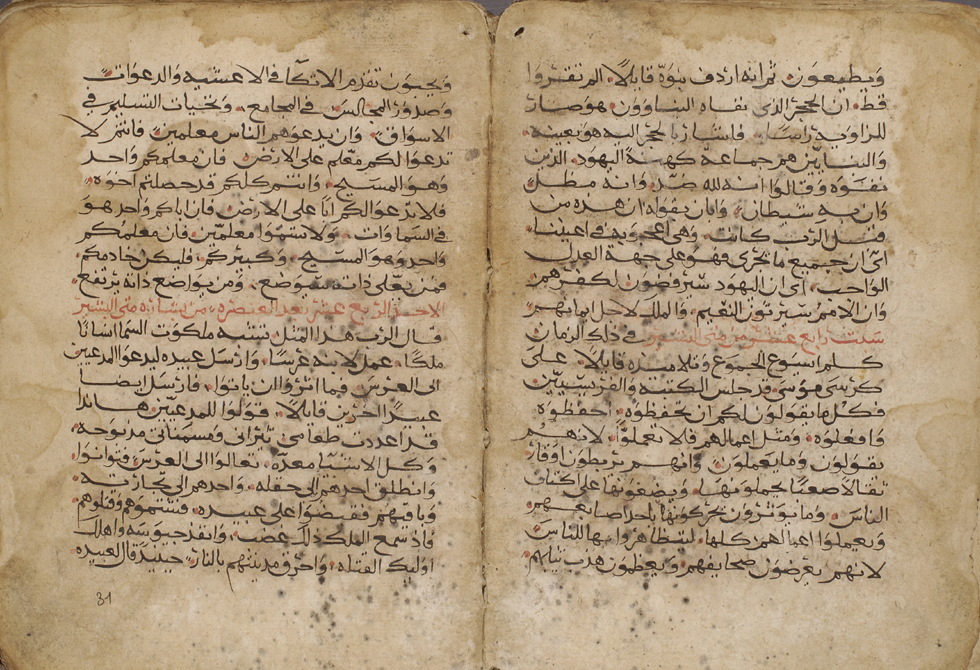 ويطيعون ثم انه اردف بنبوة قايلا الم تقروا
قط ان الحجر الذي نفاه البناوون هو صار
للزاوية راسا فاشار بالحجر اليه هو بعينه
والبنايين هم جماعة كهنة اليهود الذين
نفوه وقالوا انه لله ضد وانه مظل
وان به شيطان وابان بقوله ان هذه من
قبل الرب كانت وهي اعجوبة في اعيننا
اي ان جميع ما يجري فهو على جهة العدل
الواجب اي ان اليهود سيرفضون لكفرهم
وان الامم سيرثون النعيم والملك لاجل ايمانهم
سبت رابع عشر من متى البشير في ذلك الزمان
كلم ايسوع الجموع وتلامذه قايلا على
كرسي موسى قد جلس الكتبة والفريسيين
فكل ما يقولون لكم ان تحفظوه احفظوه
وافعلوه ومثل اعمالهم فلا تعملوا لانهم
يقولون وما يعملون وانهم يربطون اوقار
ثقالا صعبا حملونها ويضعونها على اكتاف
الناس وما يوثرون تحركونها باحد اصابعهم
ويعملوا اعمالهم كلها ليتظاهروا بها للناس
لانهم يعرضون صحايفهم ويعظمون هدب ثيابهم
ويحبون تقدم الاتكا في الاعشية والدعوات
وصدور المجالس في المجامع وتحيات التسليم في
الاسواق وان يدعوهم الناس معلمين فانتم لا
تدعوا لكم معلم على الارض فان معلمكم واحد
وهو المسيح وانتم كلكم قد حصلتم اخوه
فلا تدعوا لكم ابا على الارض فان اباكم واحد هو
في السماوات ولا تسموا معلمين فان معلمكم
واحد وهو المسيح وكبيركم فليكن خادمكم
فمن يعلي ذاته سيوضع ومن يواضع ذاته يرتفع
الاحد الرابع عشر بعد العنصره من بشارة متى البشير
قال الرب هذا المثل تشبه ملكوت السما انسانا
ملكا عمل لابنه عرسا وارسل عبيده ليدعوا المدعيين
الى العرس فما اثروا ان ياتوا فارسل ايضا
عبيدا اخرين قايلا قولوا للمدعيين هاندا
قد اعددت طعامي ثيراني ومسمناتي مذبوحة
وكل الاشيا معدة تعالوا الى العرس فتوانوا
وانطلق احدهم الى حقله واحدهم الى تجارته
وباقيهم فقبضوا على عبيده فشتموهم وقتلوهم
واذ سمع الملك ذلك غضب وانفد جيوشه واهلك
اوليك القتلة واحرق مدينتهم بالنار حينيد قال لعبيده
31